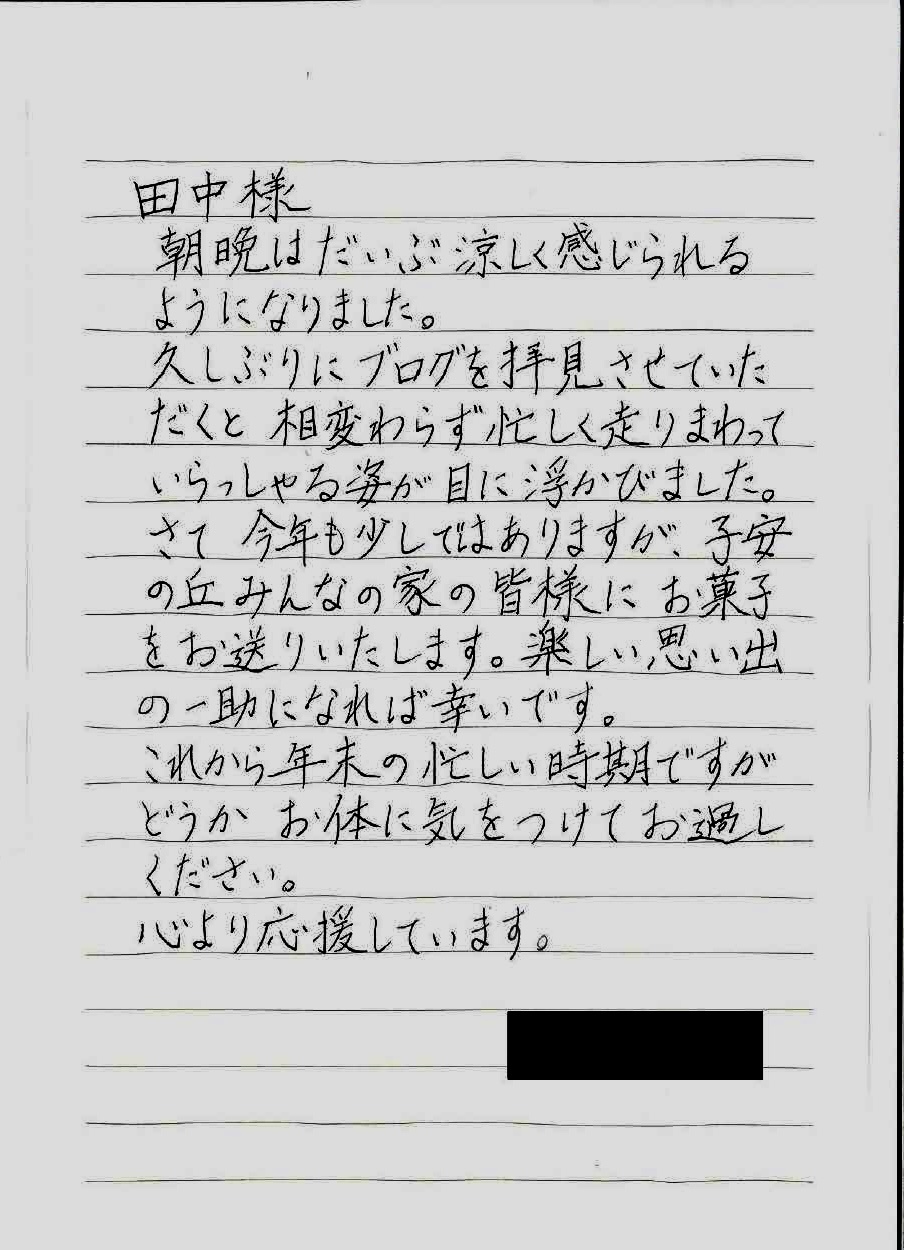 田中様
朝晩はだいぶ涼しく感じられる
ようになりました。
久しぶりにブログを拝見させていた
だくと 相変わらず忙しく走りまわって
いらっしゃる姿が目に浮かびました。
さて 今年も少しではありますが、子安
の丘みんなの家の皆様に お菓子
をお送りいたします。楽しい思い出
の一助になれば幸いです。
これから年末の忙しい時期ですが
どうか お体に気をつけてお過し
ください。
心より応援しています。